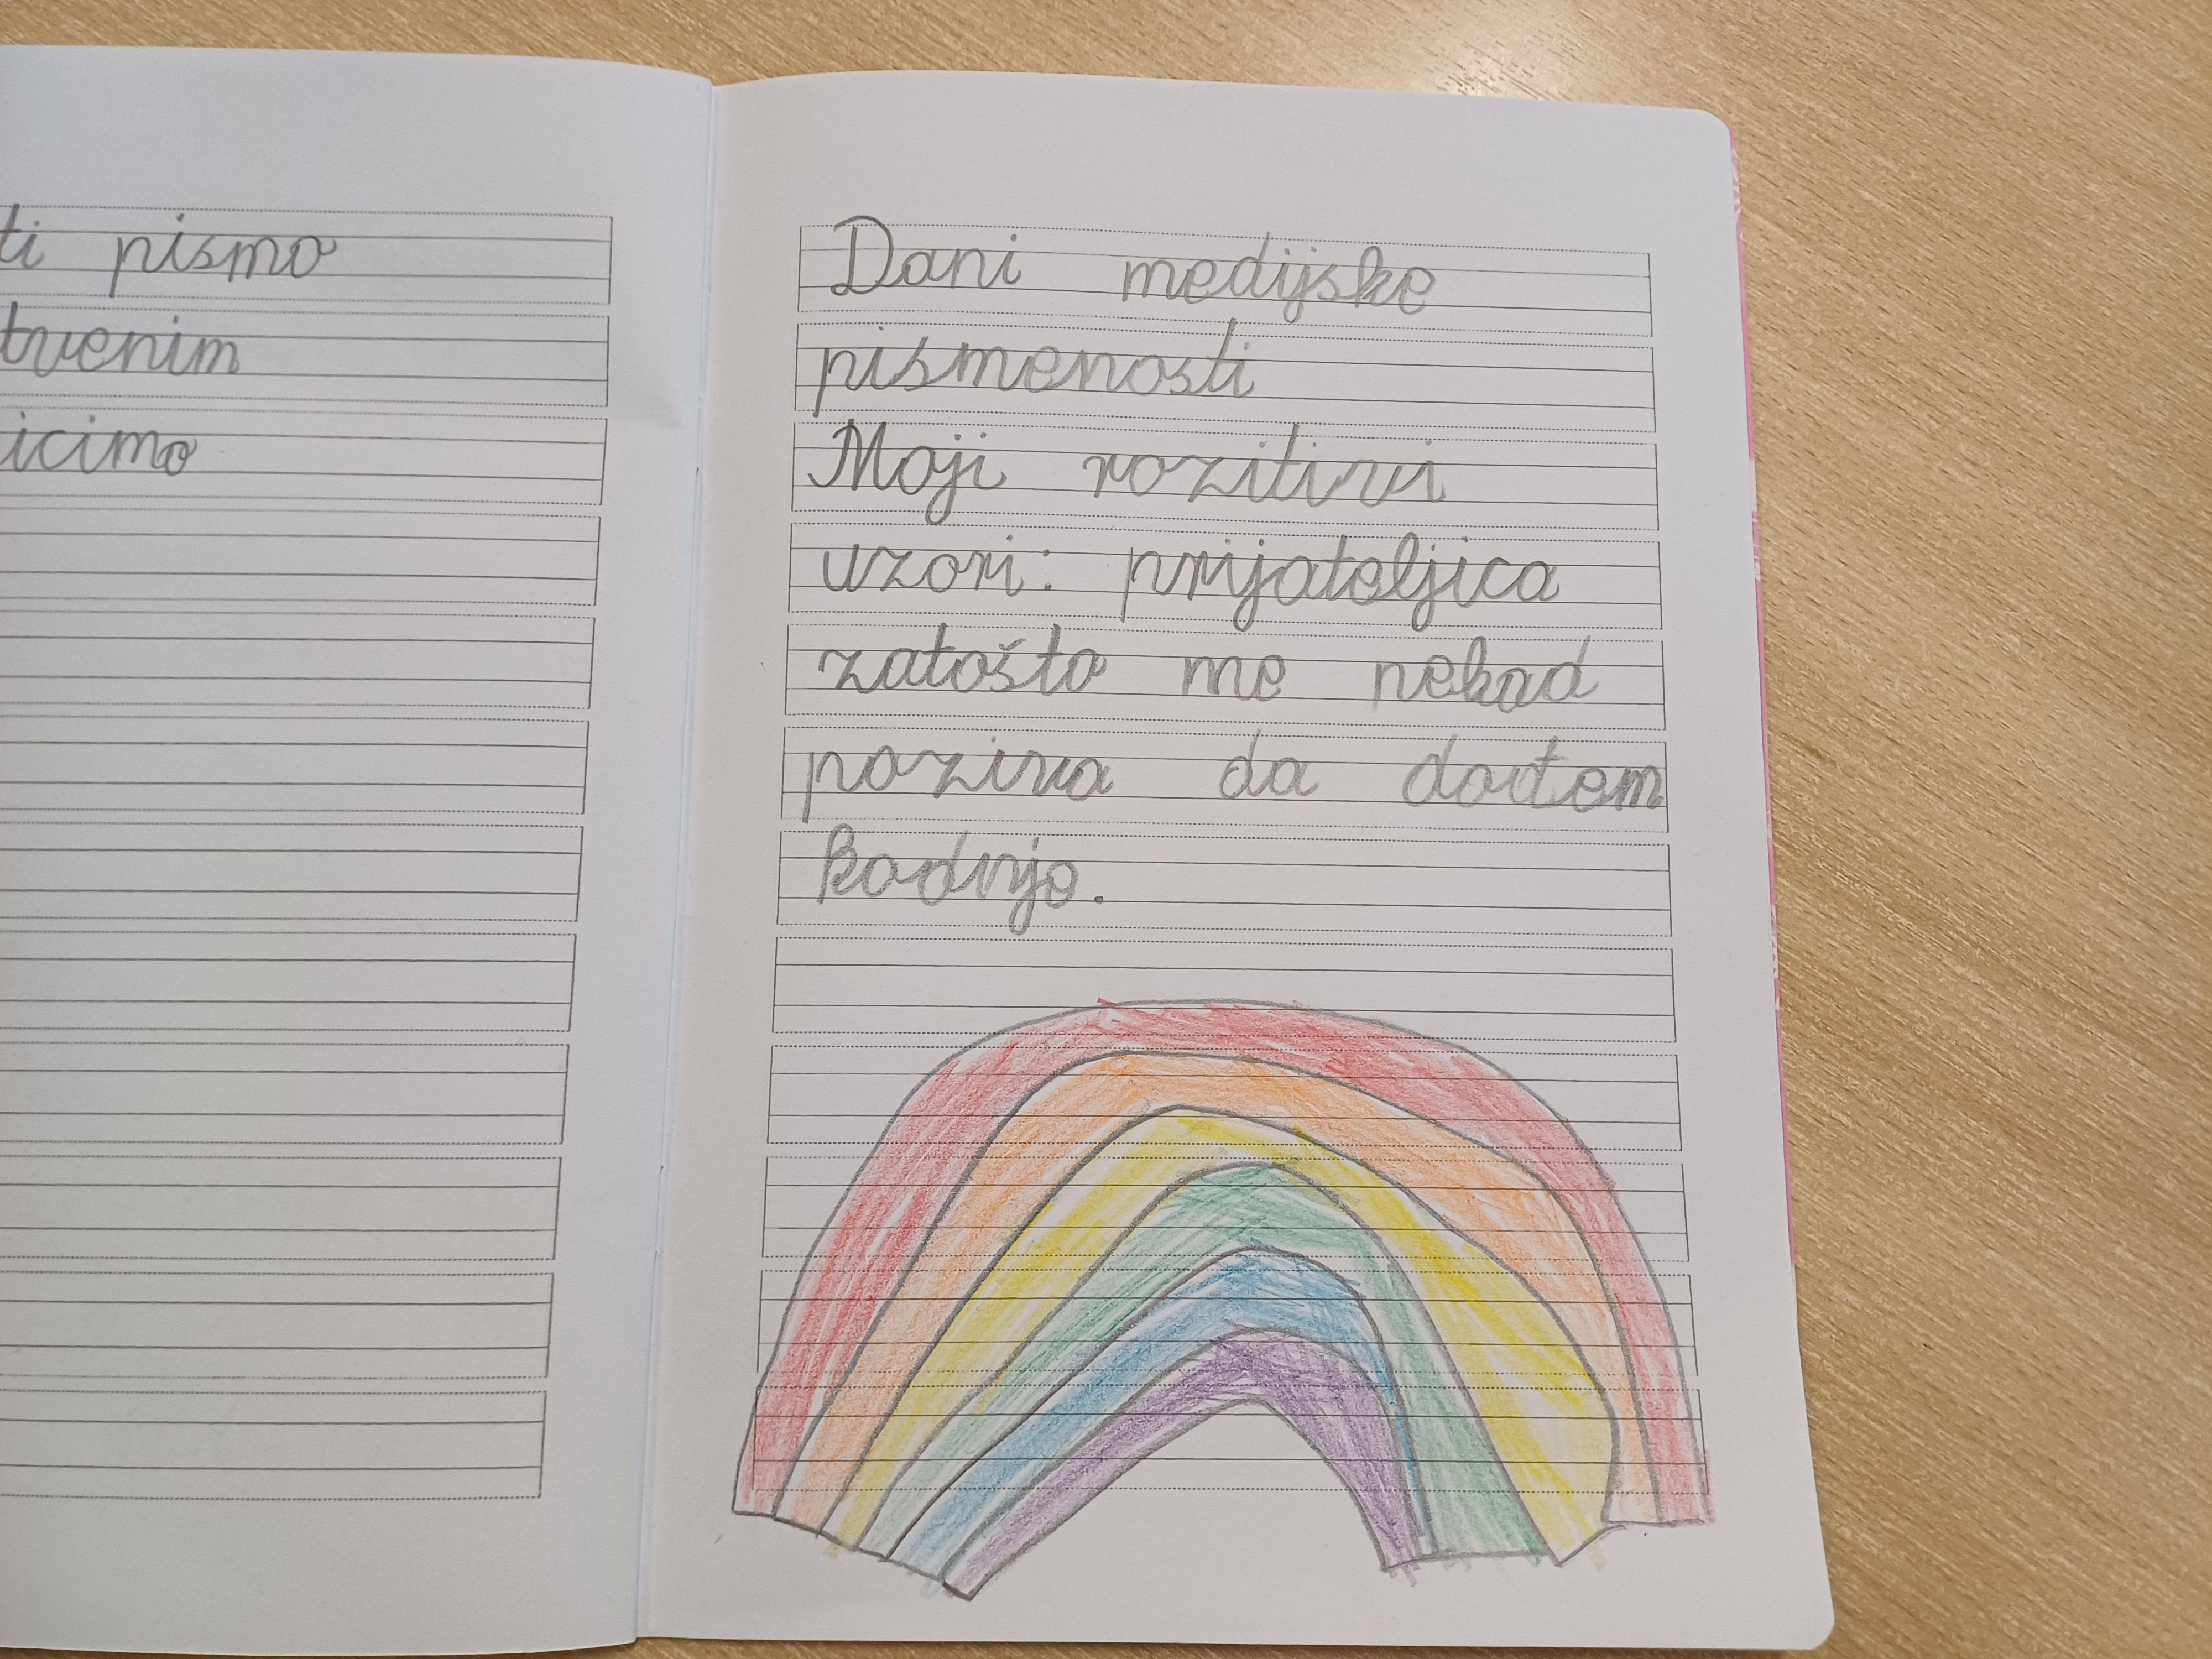 ti pismo
tvenim
icimo
Dani medijske
pismenosti
Moji pozitivi
uzori: prijateljica
zatošto me nekad
poziva da dođem
kodnje.